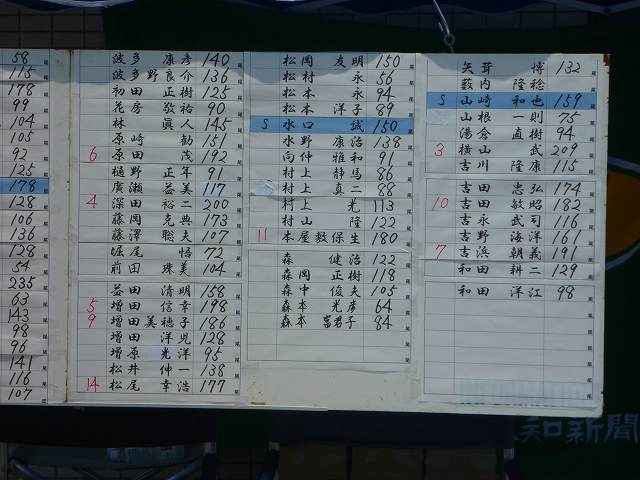 58
115
178
99
104
105
92
125
178
128
106
136
128
54
235
63
143
98
96
141
116
107
波多 康彦 140 尾
波多野良介 136 尾
初田 正樹 125 尾
花房 敬祐 90 尾
林 眞人 145 尾
原崎 勧 151 尾
6 原田 茂 192 尾
樋野 正年 91 尾
廣瀬 益美 117 尾
4 深田 裕二 200 尾
藤岡 克典 173 尾
藤澤 聡夫 107 尾
堀尾 悟 72 尾
前田 珠美 104 尾
益田 清明 158 尾
5 増田 信幸 198 尾
9 増田美穂子 186 尾
増田 洋児 128 尾
増原 光洋 95 尾
松井 伸一 138 尾
14 松尾 幸浩 177 尾
松岡 友明 150 尾
松村 永 56 尾
松本 永 94 尾
松本 洋子 89 尾
S 水口 誠 150 尾
水野 康治 138 尾
向仲 雅和 91 尾
村上 静馬 86 尾
村上 真二 88 尾
村上 光 113 尾
村山 隆 122 尾
11 本屋敷保生 180 尾
森 健治 122 尾
森岡 正樹 118 尾
森中 俊夫 105 尾
森本 光彦 64 尾
森本 富君子 84 尾
矢茸 博 132 尾
藪内 隆稔 尾
S 山崎 和也 159 尾
山根 一則 75 尾
湯倉 直樹 94 尾
3 横山 武 209 尾
吉川 隆康 115 尾
吉田 忠弘 174 尾
10 吉田 敏昭 182 尾
吉永 武司 116 尾
吉野 海洋 161 尾
7 吉浜 朝義 191 尾
和田 耕二 129 尾
和田 洋江 98 尾
知新聞